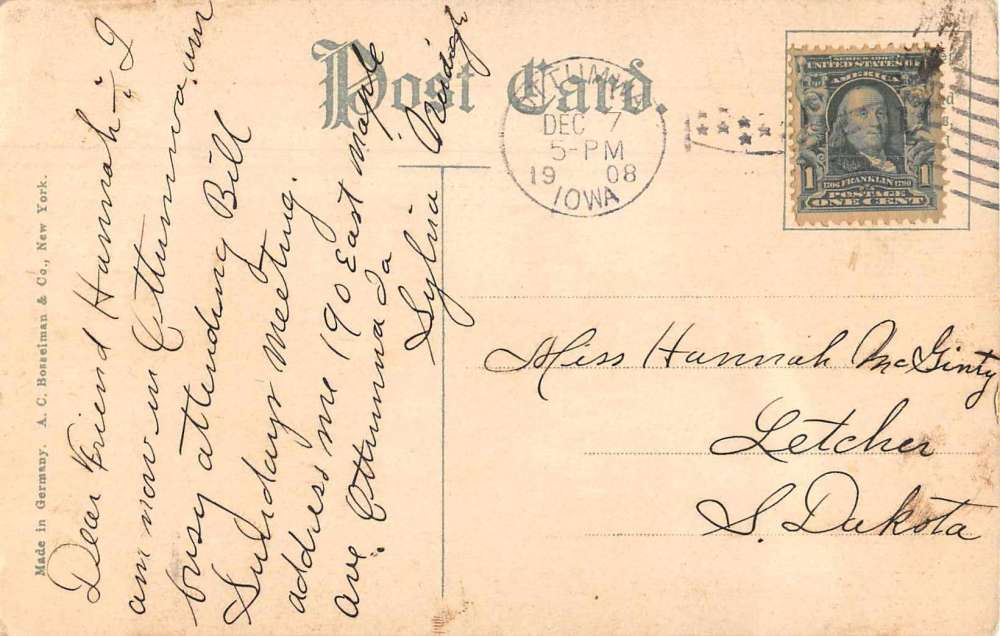 Post Card.
Made in Germany. A. C. Bosselman & Co., New York.
Dear Friend Hannah – I
am now in Ottumwa. am
busy attending Bill
Sundays Meeting.
address me 190 East Maple
Ave. Ottumwa Ia
Sylvia
OTTUMWA
DEC 7
5-PM
1908
IOWA
SERIES 1902
UNITED STATES OF
AMERICA
1 1
1706 FRANKLIN 1790
POSTAGE
ONE CENT
Miss Hannah McGinty
Letcher
S. Dakota